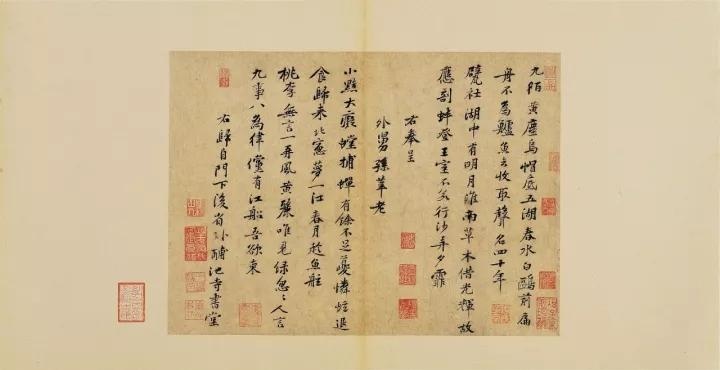 九陌黃塵烏帽底五湖春水白鷗前扁
舟不為鱸魚去收取聲名四十年
甓社湖中有明月淮南草木借光輝故
應剖蚌登王室不若行沙弄夕霏
右奉呈
外舅孫莘老
小黠大癡螳捕蟬有餘不足夔憐蚿退
食歸來北窻夢一江春月趁魚船
桃李無言一再風黃鸝唯見綠怱〻人言
九事八為律儻有江船吾欲東
右歸自門下後省臥酺池寺書堂